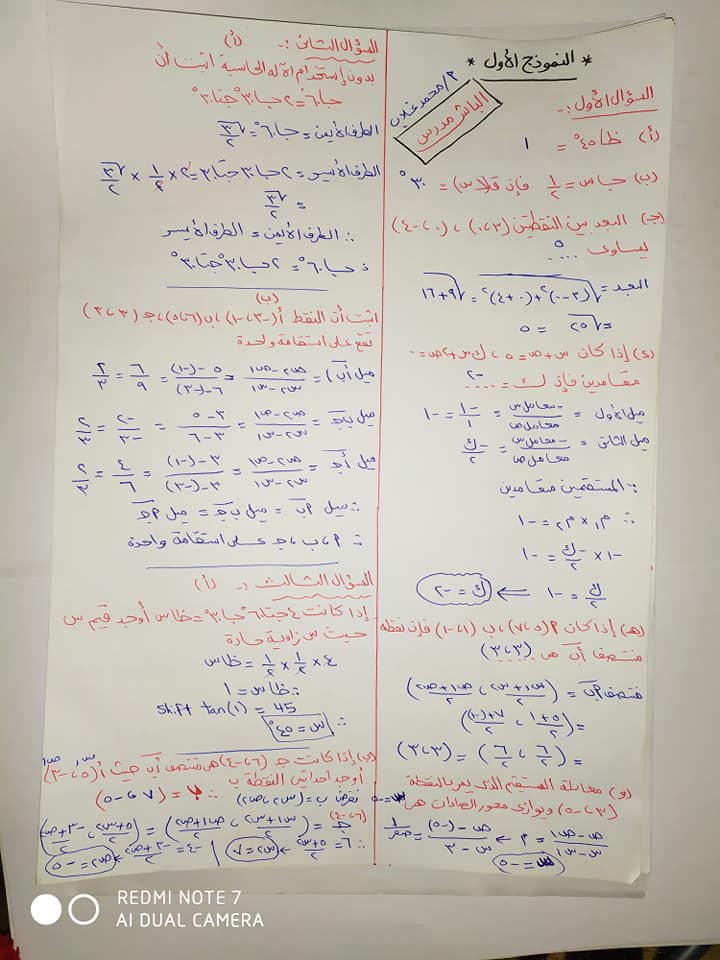 * النموذج الأول *
م/محمد غلاب
الباش مدرس
السؤال الأول :-
(أ) ظا ٤٥° = ١
(ب) جاس = ١/٢ فإن ق(لاس) = ٣٠°
(ج) البعد بين النقطتين (٣،٠) ، (٠،-٤)
يساوى ٥ ....
البعد = √(٣-٠)²+(٠+٤)² = √٩+١٦
= √٢٥ = ٥
(د) إذا كان س+ص=٥ ، ك س+٢ص=٠
متعامدين فإن ك = -٢ ....
ميل الأول = -معامل س/معامل ص = -١/١ = -١
ميل الثانى = -معامل س/معامل ص = -ك/٢
∵ المستقيمين متعامدين
∴ م١ × م٢ = -١
-١ × -ك/٢ = -١
ك/٢ = -١ ← ك = -٢
(هـ) إذا كان أ (٥،٧) ، ب (١،-١) فإن نقطة
منتصف أب هى (٣،٣)
منتصف أب = (س١+س٢/٢ ، ص١+ص٢/٢)
= (٥+١/٢ ، ٧+(-١)/٢)
= (٦/٢ ، ٦/٢) = (٣،٣)
(و) معادلة المستقيم الذى يمر بالنقطة
(٣،-٥) ويوازى محور الصادات هى
ص-ص١/س-س١ = م ← ص-(-٥)/س-٣ = ١/صفر
س = -٥
السؤال الثانى :- (أ)
بدون إستخدام الآلة الحاسبة اثبت أن
جا٦٠° = ٢جا٣٠° جتا٣٠°
الطرف الأيمن = جا٦٠° = √٣/٢
الطرف الأيسر = ٢جا٣٠ جتا٣٠ = ٢ × ١/٢ × √٣/٢
= √٣/٢
∴ الطرف الأيمن = الطرف الأيسر
∴ جا٦٠° = ٢جا٣٠° جتا٣٠°
(ب)
اثبت أن النقط أ(-٣،-١) ، ب(٦،٥) ، جـ(٣،٣)
تقع على استقامة واحدة
ميل أب = ص٢-ص١/س٢-س١ = ٥-(-١)/٦-(-٣) = ٦/٩ = ٢/٣
ميل ب جـ = ص٢-ص١/س٢-س١ = ٣-٥/٣-٦ = -٢/-٣ = ٢/٣
ميل أجـ = ص٢-ص١/س٢-س١ = ٣-(-١)/٣-(-٣) = ٤/٦ = ٢/٣
∴ ميل أب = ميل ب جـ = ميل أجـ
∴ أ، ب، جـ على استقامة واحدة
السؤال الثالث :- (أ)
إذا كانت ٤جتا٦٠° جا٣٠° = ظاس أوجد قيم س
حيث س زاوية حادة
٤ × ١/٢ × ١/٢ = ظاس
∴ ظاس = ١
shift tan(1) = 45
∴ س = ٤٥°
(ب) إذا كانت جـ (٦،-٤) هى منتصف أب حيث أ (٥،-٣)
أوجد احداثيى النقطة ب
نفرض ب = (س٢،ص٢) ∴ ب = (٧،-٥)
(٦،-٤)
جـ = (س١+س٢/٢ ، ص١+ص٢/٢) = (٥+س٢/٢ ، -٣+ص٢/٢)
∴ ٦ = ٥+س٢/٢ ← س٢ = ٧ | -٤ = -٣+ص٢/٢ ← ص٢ = -٥
REDMI NOTE 7
AI DUAL CAMERA